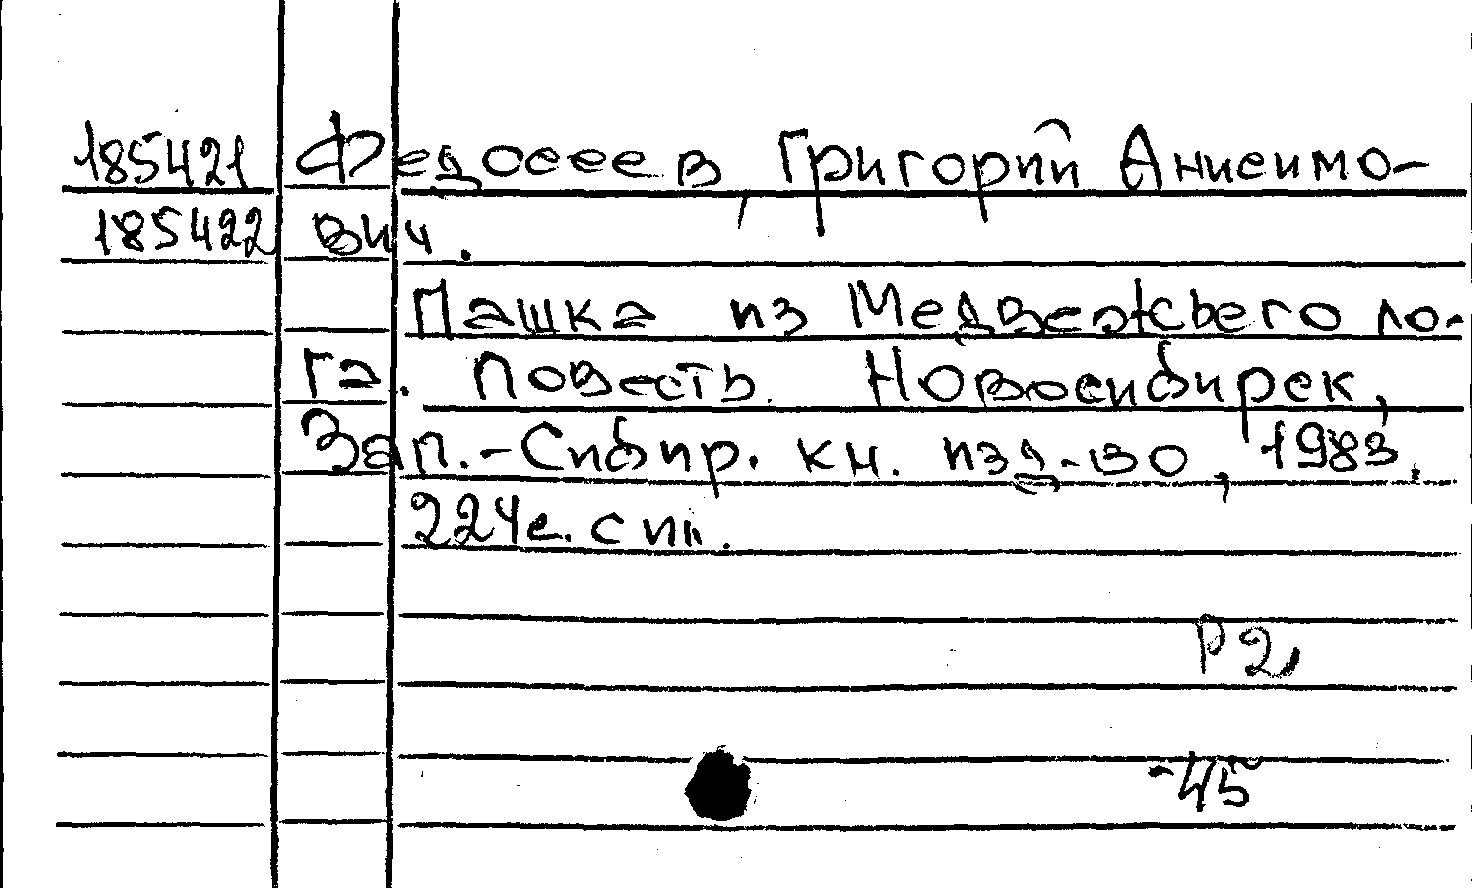 185421 Федосеев, Григорий Анисимо-
185422 вич.
Пашка из Медвежьего ло-
га. Повесть. Новосибирск,
Зап.-Сибир. кн. изд-во, 1983.
224с. с ил.
Р2
-45